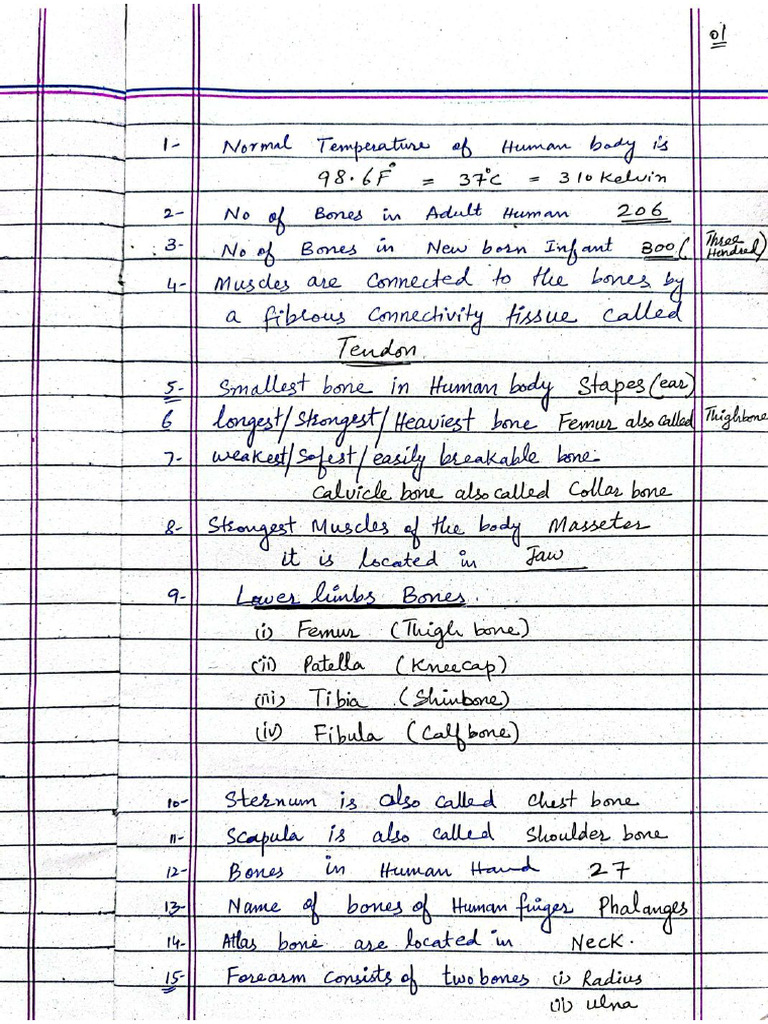 01
1- Normal Temperature of Human body is
98.6F° = 37°C = 310 Kelvin
2- No of Bones in Adult Human 206
3- No of Bones in New born Infant 300 (Three Hundred)
4- Muscles are connected to the bones by
a fibrous connectivity tissue called
Tendon
5- Smallest bone in Human body Stapes (ear)
6 longest/Strongest/Heaviest bone Femur also called Thighbone
7- weakest/Sofest/easily breakable bone
Calvicle bone also called Collar bone
8- Strongest Muscles of the body Masseter
it is located in Jaw
9- Lower limbs Bones.
(i) Femur (Thigh bone)
(ii) Patella (Kneecap)
(iii) Tibia (Shinbone)
(iv) Fibula (Calfbone)
10- Sternum is also called Chest bone
11- Scapula is also called Shoulder bone
12- Bones in Human Hand 27
13- Name of bones of Human finger Phalanges
14- Atlas bone are located in Neck.
15- Forearm consists of two bones (i) Radius
(ii) ulna